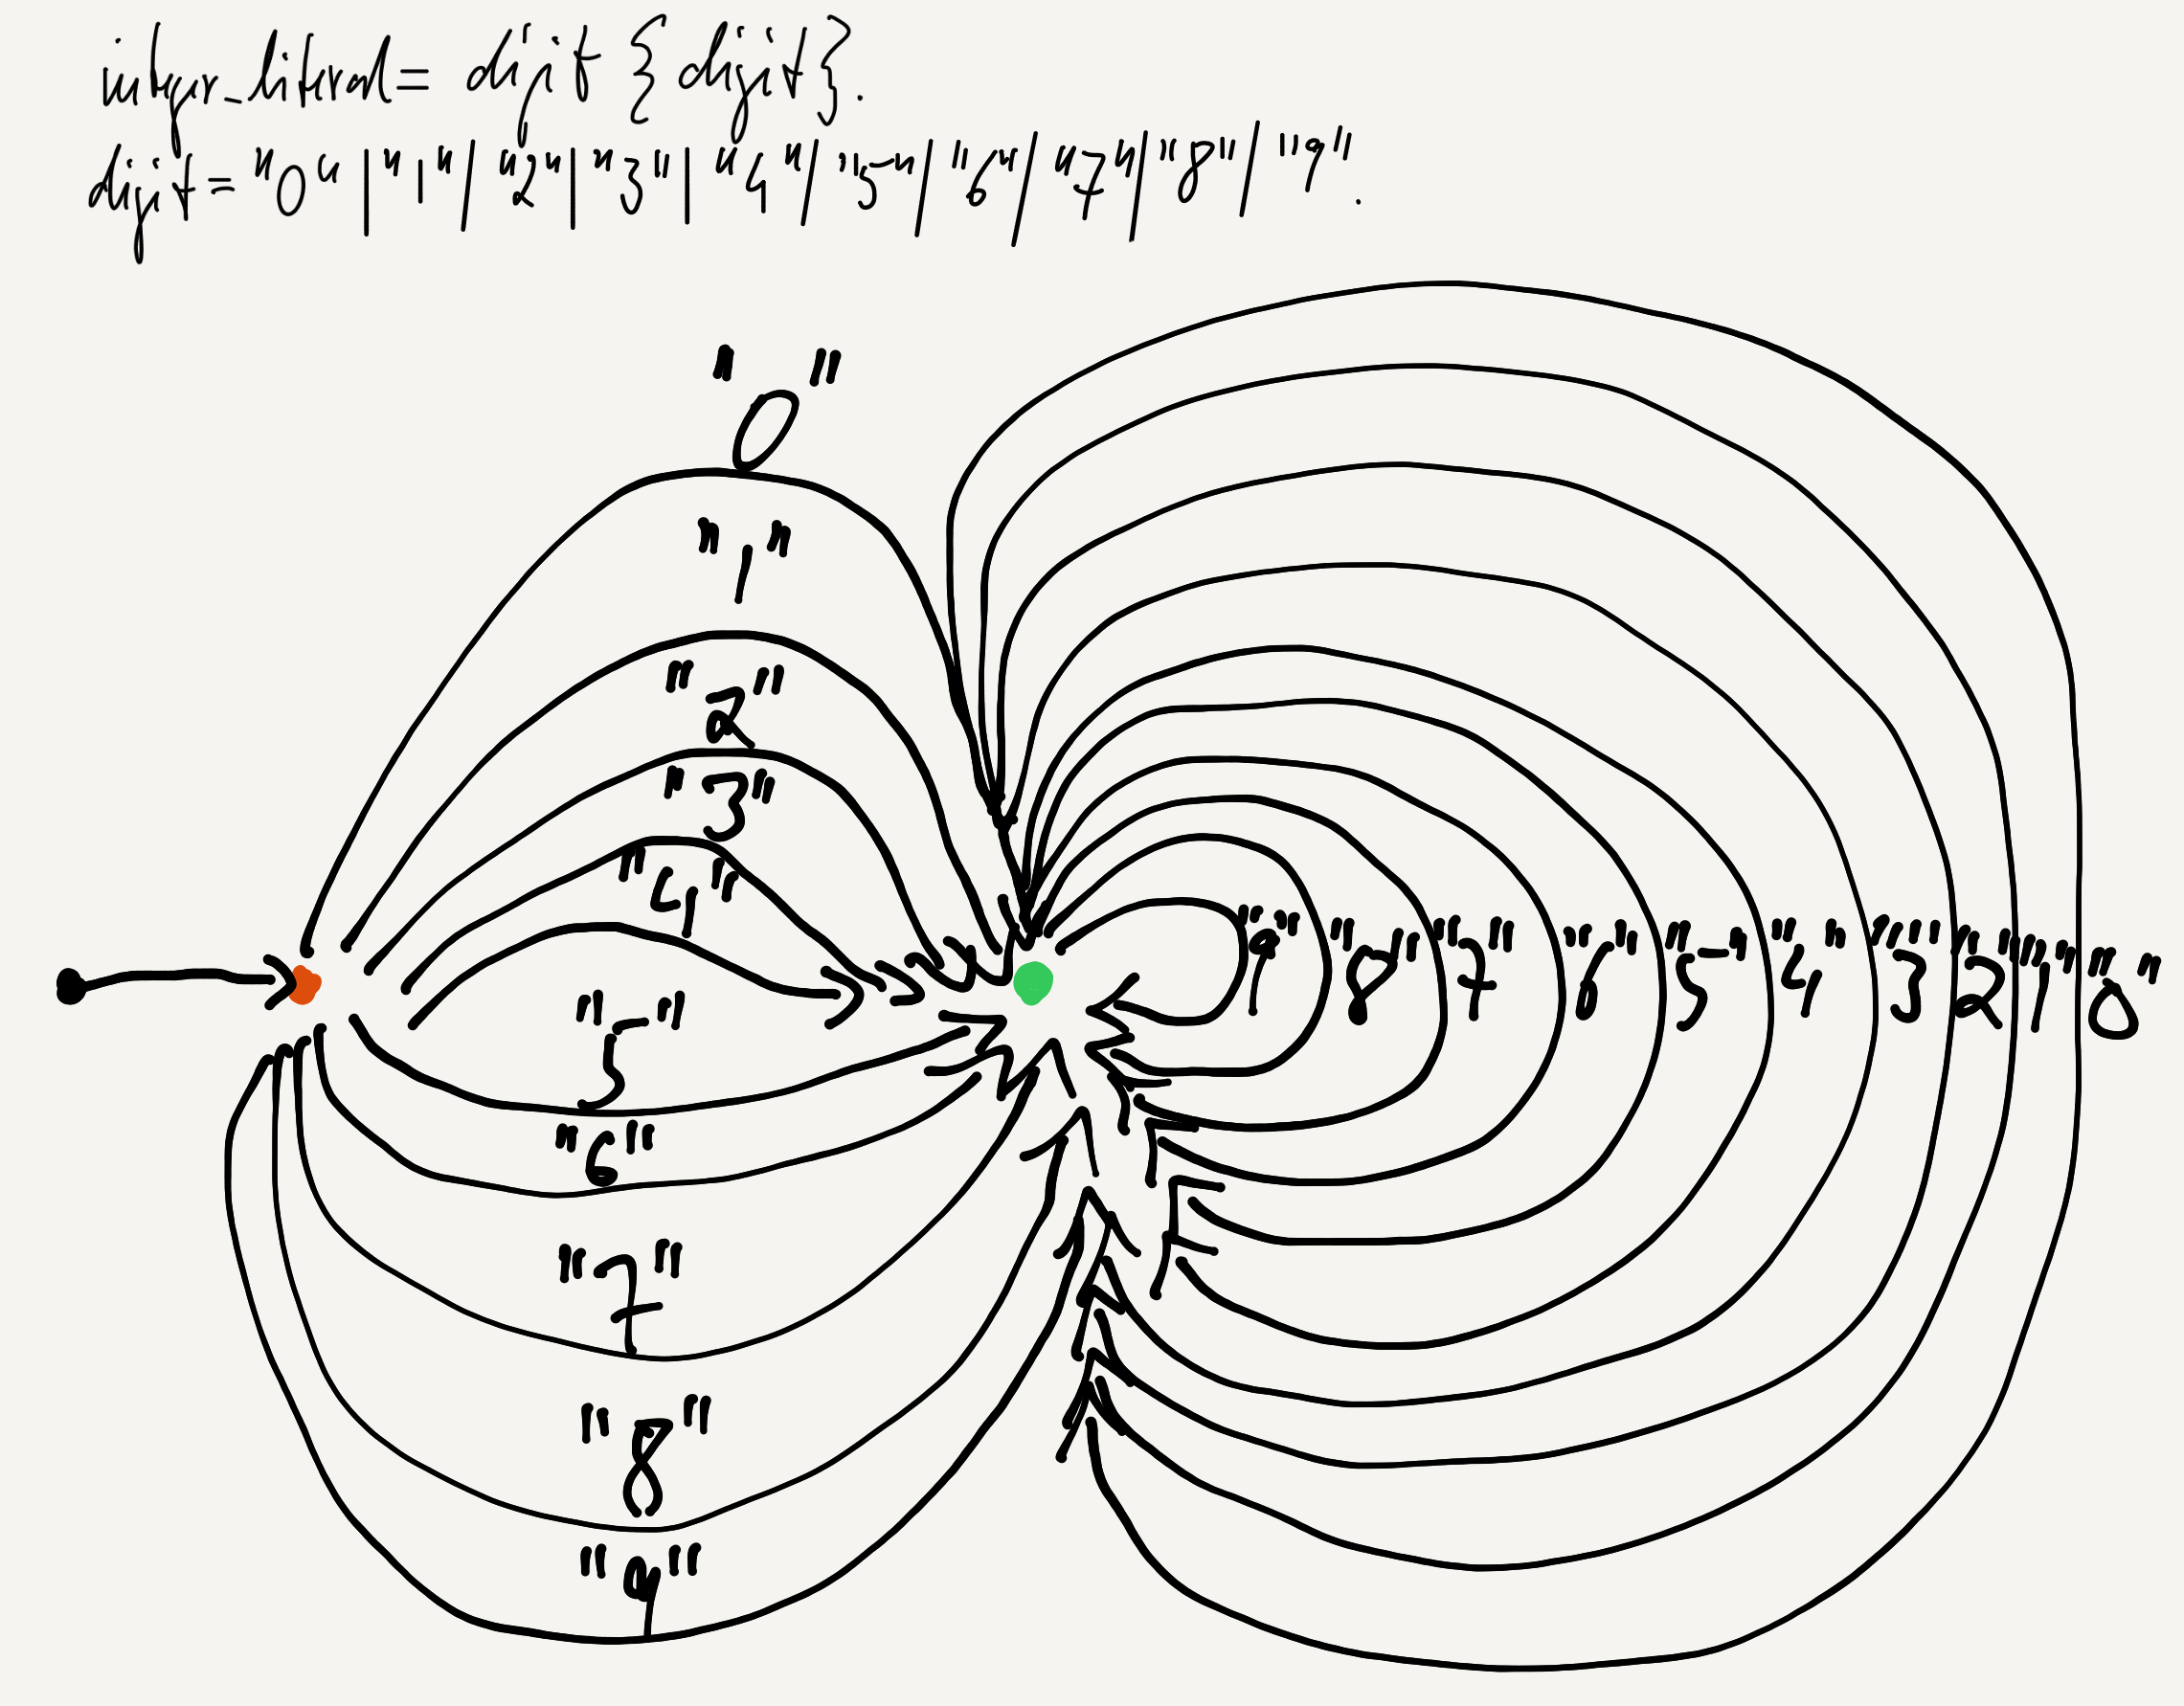 integer_literal = digit {digit}.
digit = "0" | "1" | "2" | "3" | "4" | "5" | "6" | "7" | "8" | "9".
"0"
"1"
"2"
"3"
"4"
"9" "8" "7" "6" "5" "4" "3" "2" "1" "0"
"5"
"6"
"7"
"8"
"9"